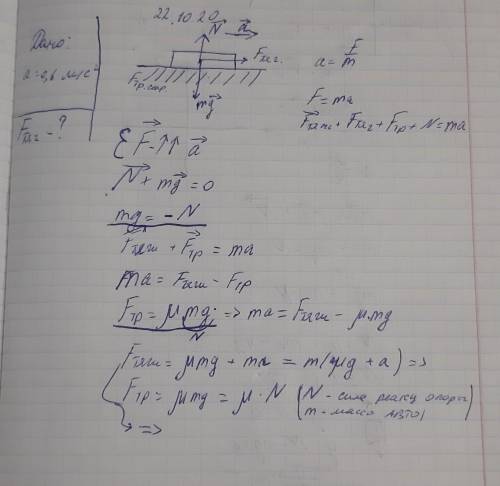 22.10.20
Дано:
a = 0,6 м/с²
F⃗тяг - ?
N⃗ a⃗
Fтяг.
Fтр.
mg⃗
a = F/m
F = ma
F⃗тяж + F⃗тяг + F⃗тр + N = ma
ΣF⃗-↑↑ a⃗
N⃗ + mg⃗ = 0
mg = -N
F⃗тяги + F⃗тр = ma
ma = Fтяги - Fтр
Fтр = μmg => ma = Fтяги - μmg
N
Fтяги = μmg + ma = m(μg + a) =>
Fтр = μmg = μ·N (N - сила реакц опоры
m - масса АВТО)
=>